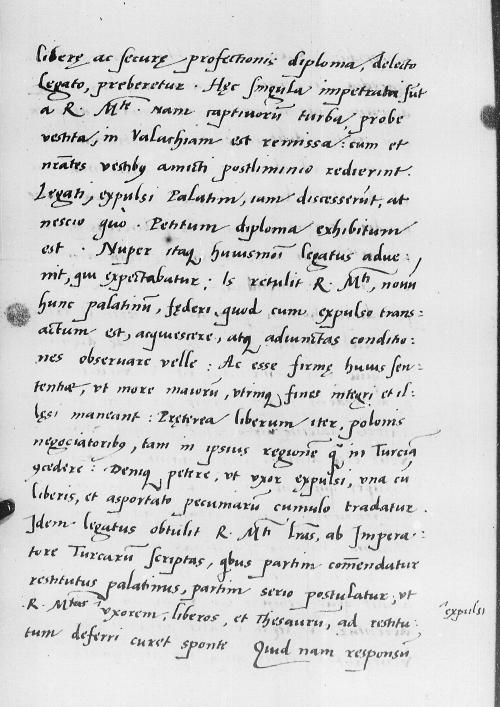 liberę ac securę profectionis diploma, delecto
Legato, preberetur . Hęc singula impetrata sūt
a R. M.te . Nam captivorū turba, probe
vestita, in Valachiam est remissa : cum et
vestibꝫ amicti postliminio redierint.
Legati, expulsi Palatini, iam discesserūt, at
nescio quò . Petitum diploma exhibitum
est . Nuper itaqꝫ huiusmōi legatus adve:
nit, qui expectabatur ; Is retulit R. M.ti, novū
hunc palatinū, fęderi quod cum expulso trans:
actum est, acquiescere, atqꝫ adiunctas conditio:
nes observare velle : Ac esse firmę huius sen:
tentiæ, ut more maiorū, utrinqꝫ fines integri et il:
lęsi maneant : Pręterea liberum iter, polonis
negociatoribꝫ, tam in ipsius regionē q̄ in Turciā
ꝯcedere : Deniqꝫ petere, ut uxor expulsi, una cū
liberis, et asportato pecuniarū cumulo tradatur .
Idem legatus obtulit R. M.ti Lr̄as, ab Impera:
tore Turcarū scriptas, qͥbus partim com̄endatur
restitutus palatinus, partim serio postulatur, ut
R. M.tas ^uxorem, liberos, et Thesaurū, ad restitu: ^expulsi
tum deferri curet sponte Quid nam responsū